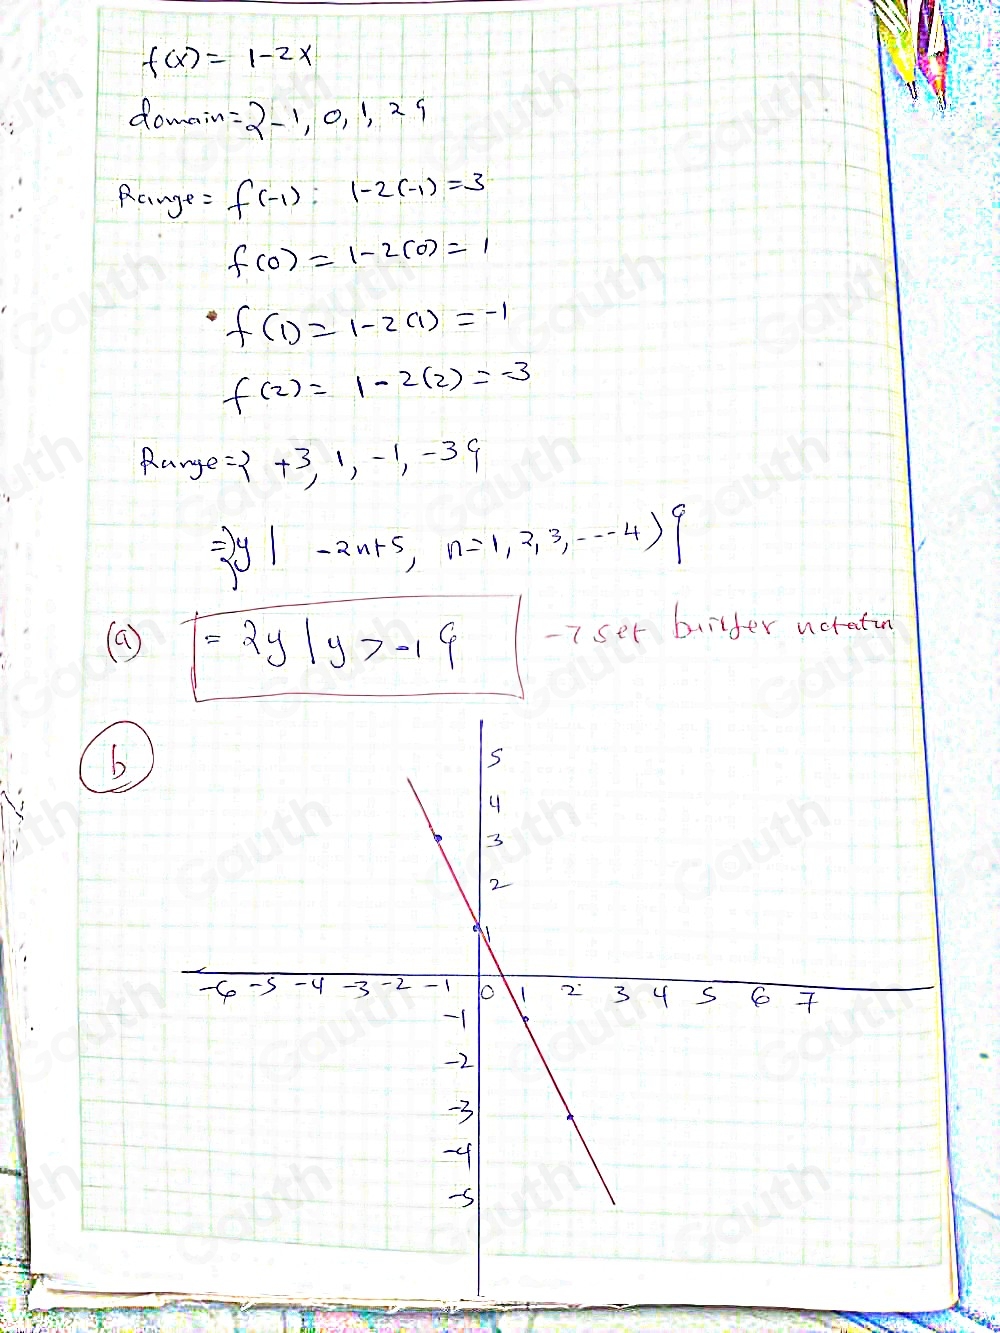 f(x) = 1-2x
domain = {-1, 0, 1, 2}
Range = f(-1): 1-2(-1) = 3
f(0) = 1-2(0) = 1
f(1) = 1-2(1) = -1
f(2) = 1-2(2) = -3
Range = { +3, 1, -1, -3}
= {y | -2n+5, n=1, 2, 3, ---4)}
(a) = {y | y > -1 } → set builder notation
b
5
4
3
2
1
-6 -5 -4 -3 -2 -1 0 1 2 3 4 5 6 7
-1
-2
-3
-4
-5